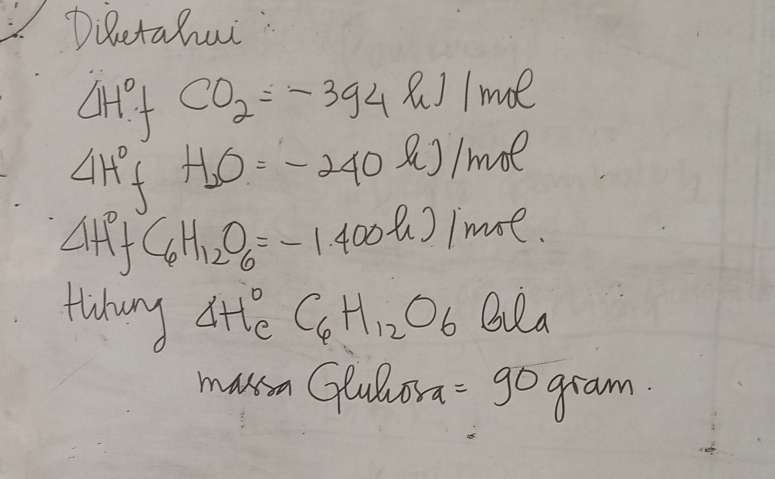 Diketahui :
ΔH°f CO₂ = - 394 kJ / mol
ΔH°f H₂O = - 240 kJ/mol
ΔH°f C₆H₁₂O₆ = - 1.400 kJ / mol.
Hitung ΔH°c C₆H₁₂O₆ bila
massa Glukosa = 90 gram.